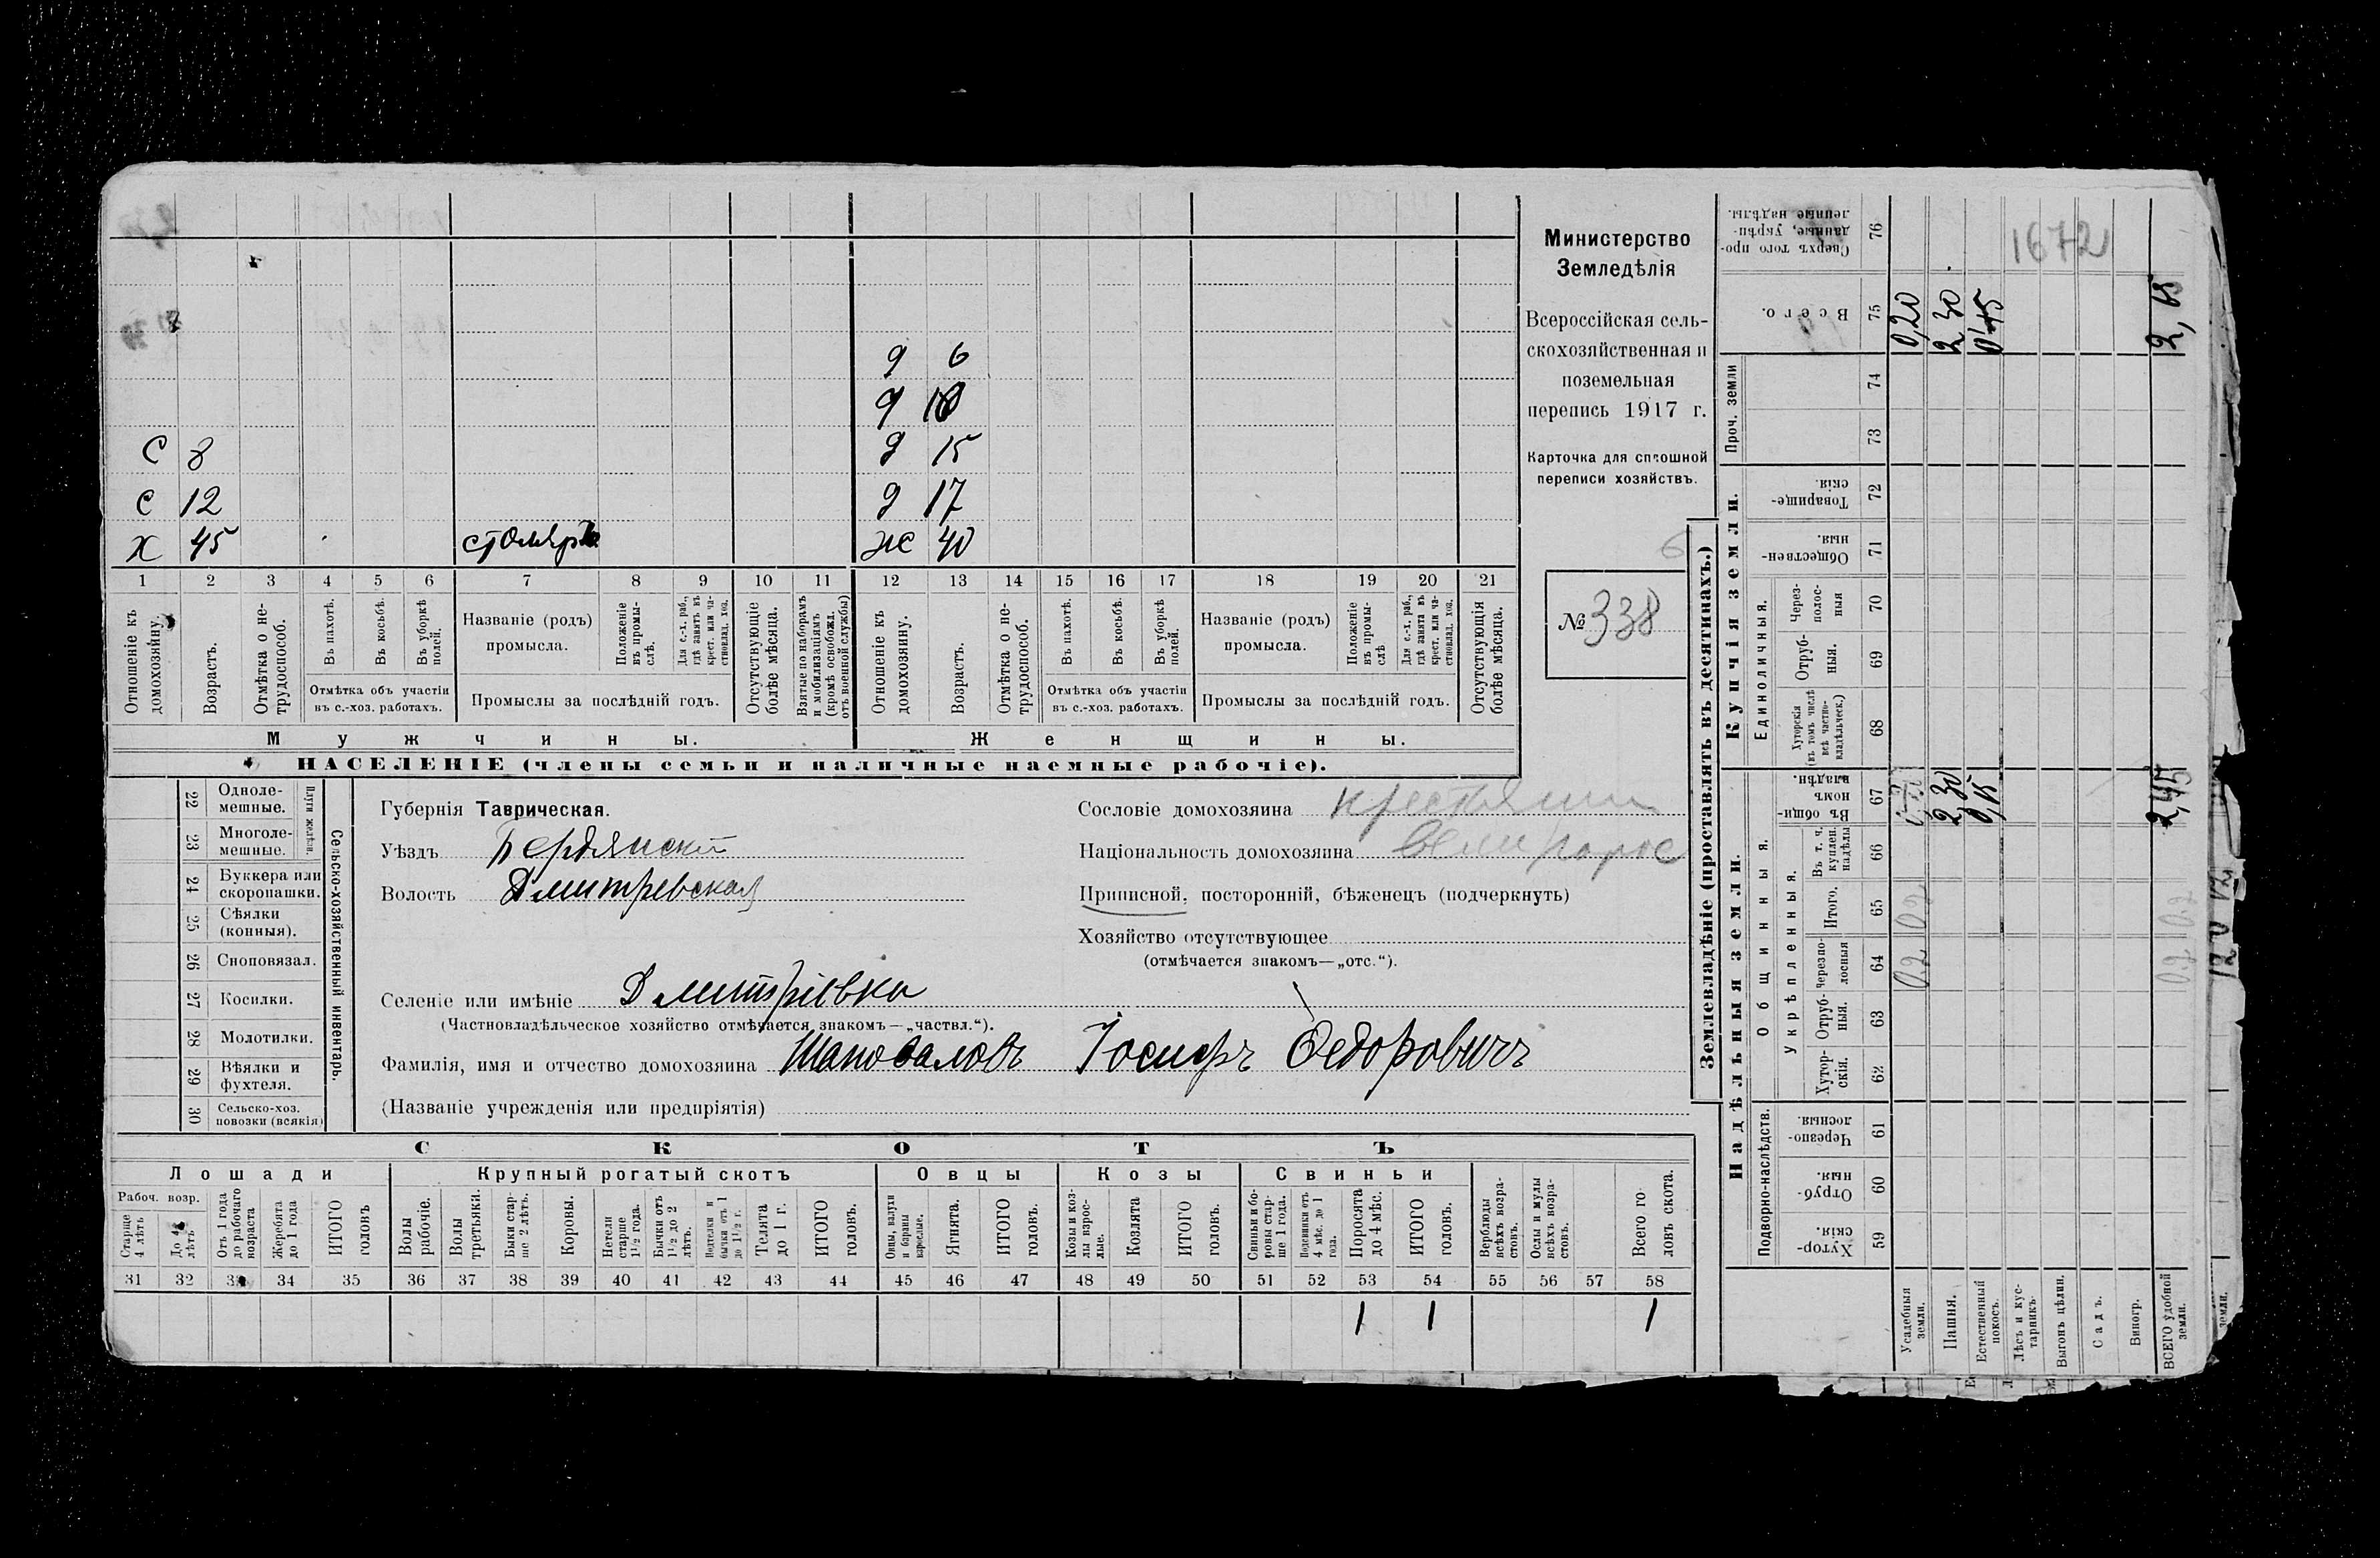 Министерство
Земледѣлія
Всероссійская сель-
скохозяйственная и
поземельная
перепись 1917 г.
Карточка для сплошной
переписи хозяйствъ.
№ 338
6
1672
д 6
д 10
С 8
д 15
С 12
д 17
Х 45 столяръ
же 40
1 2 3 4 5 6 7 8 9 10 11 12 13 14 15 16 17 18 19 20 21
Отношеніе къ домохозяину.
Возрастъ.
Отмѣтка о не-трудоспособ.
Въ пахотѣ.
Въ косьбѣ.
Въ уборкѣ полей.
Отмѣтка объ участіи
въ с.-хоз. работахъ.
Названіе (родъ)
промысла.
Положеніе въ промы-слѣ.
Для с.-х. раб., гдѣ занятъ въ крест. или ча-стновлад. хоз.
Промыслы за послѣдній годъ.
Отсутствующіе болѣе мѣсяца.
Взятые по наборамъ и мобилизаціямъ (кромѣ освобожд. отъ военной службы)
Отношеніе къ домохозяину.
Возрастъ.
Отмѣтка о не-трудоспособ.
Въ пахотѣ.
Въ косьбѣ.
Въ уборкѣ полей.
Отмѣтка объ участіи
въ с.-хоз. работахъ.
Названіе (родъ)
промысла.
Положеніе въ промы-слѣ
Для с.-х. раб., гдѣ занята въ крест. или ча-стновлад. хоз.
Промыслы за послѣдній годъ.
Отсутствующія болѣе мѣсяца.
Мужчины.
Женщины.
НАСЕЛЕНІЕ (члены семьи и наличные наемные рабочіе).
22 Одноле-мешные.
23 Многоле-мешные.
Плуги желѣзн.
24 Буккера или скоропашки.
25 Сѣялки (конныя).
26 Сноповязал.
27 Косилки.
28 Молотилки.
29 Вѣялки и фухтеля.
30 Сельско-хоз. повозки (всякія)
Сельско-хозяйственный инвентарь.
Губернія Таврическая.
Уѣздъ Бердянскій
Волость Дмитревская
Селеніе или имѣніе Дмитрівка
(Частновладѣльческое хозяйство отмѣчается знакомъ—„частвл.“).
Фамилія, имя и отчество домохозяина Шаповаловъ Іосифъ Федоровичъ
(Названіе учрежденія или предпріятія)
Сословіе домохозяина крестьянин
Національность домохозяина великорос
Приписной, посторонній, бѣженецъ (подчеркнуть)
Хозяйство отсутствующее
(отмѣчается знакомъ—„отс.“).
СКОТЪ
Лошади
Крупный рогатый скотъ
Овцы
Козы
Свиньи
Рабоч. возр.
Старше 4 лѣтъ
До 4 лѣтъ
Отъ 1 года до рабочаго возраста
Жеребята до 1 года
ИТОГО головъ
Волы рабочіе.
Волы третьяки.
Быки стар-ше 2 лѣтъ.
Коровы.
Нетели старше 1½ года.
Бычки отъ 1½ до 2 лѣтъ.
бычки отъ 1 до 1½ г.
Телята до 1 г.
ИТОГО головъ.
Овцы, валухи и бараны взрослые.
Ягнята.
ИТОГО головъ.
Козы и коз-лы взрос-лые.
Козлята
ИТОГО головъ.
Свиньи и бо-ровы стар-ше 1 года.
Подсвинки отъ 4 мѣс. до 1 года.
Поросята до 4 мѣс.
ИТОГО головъ.
Верблюды всѣхъ возра-стовъ.
Ослы и мулы всѣхъ возра-стовъ.
Всего го-ловъ скота.
31 32 33 34 35 36 37 38 39 40 41 42 43 44 45 46 47 48 49 50 51 52 53 54 55 56 57 58
1 1 1
Землевладѣніе (проставлять въ десятинахъ.)
Надѣльныя земли.
Купчія земли.
Проч. земли
Подворно-наслѣдств.
Общинныя.
Укрѣпленныя.
Единоличныя.
Хутор-скія 59
Отруб-ныя. 60
Черезпо-лосныя. 61
Хутор-скія. 62
Отруб-ныя. 63
Черезпо-лосныя 64
Итого. 65
Въ т. ч. куплен. надѣлы 66
Въ общин-номъ владѣн. 67
Хуторскія (въ томъ числѣ всѣ частно-владѣльческ.) 68
Отруб-ныя. 69
Через-полос-ныя 70
Обществен-ныя. 71
Товарище-скія. 72
73
74
Всего. 75
Сверхъ того про-данные, укрѣп-ленные надѣлы. 76
Усадебныя земли. 02 02 0,20
Пашня. 2 30 2 30
Естественный покосъ. 0,15 0,15
Лѣсъ и кус-тарникъ.
Выгонъ цѣлин.
Садъ.
Виногр.
ВСЕГО удобной земли. 02 02 2,45 2,65
земли.